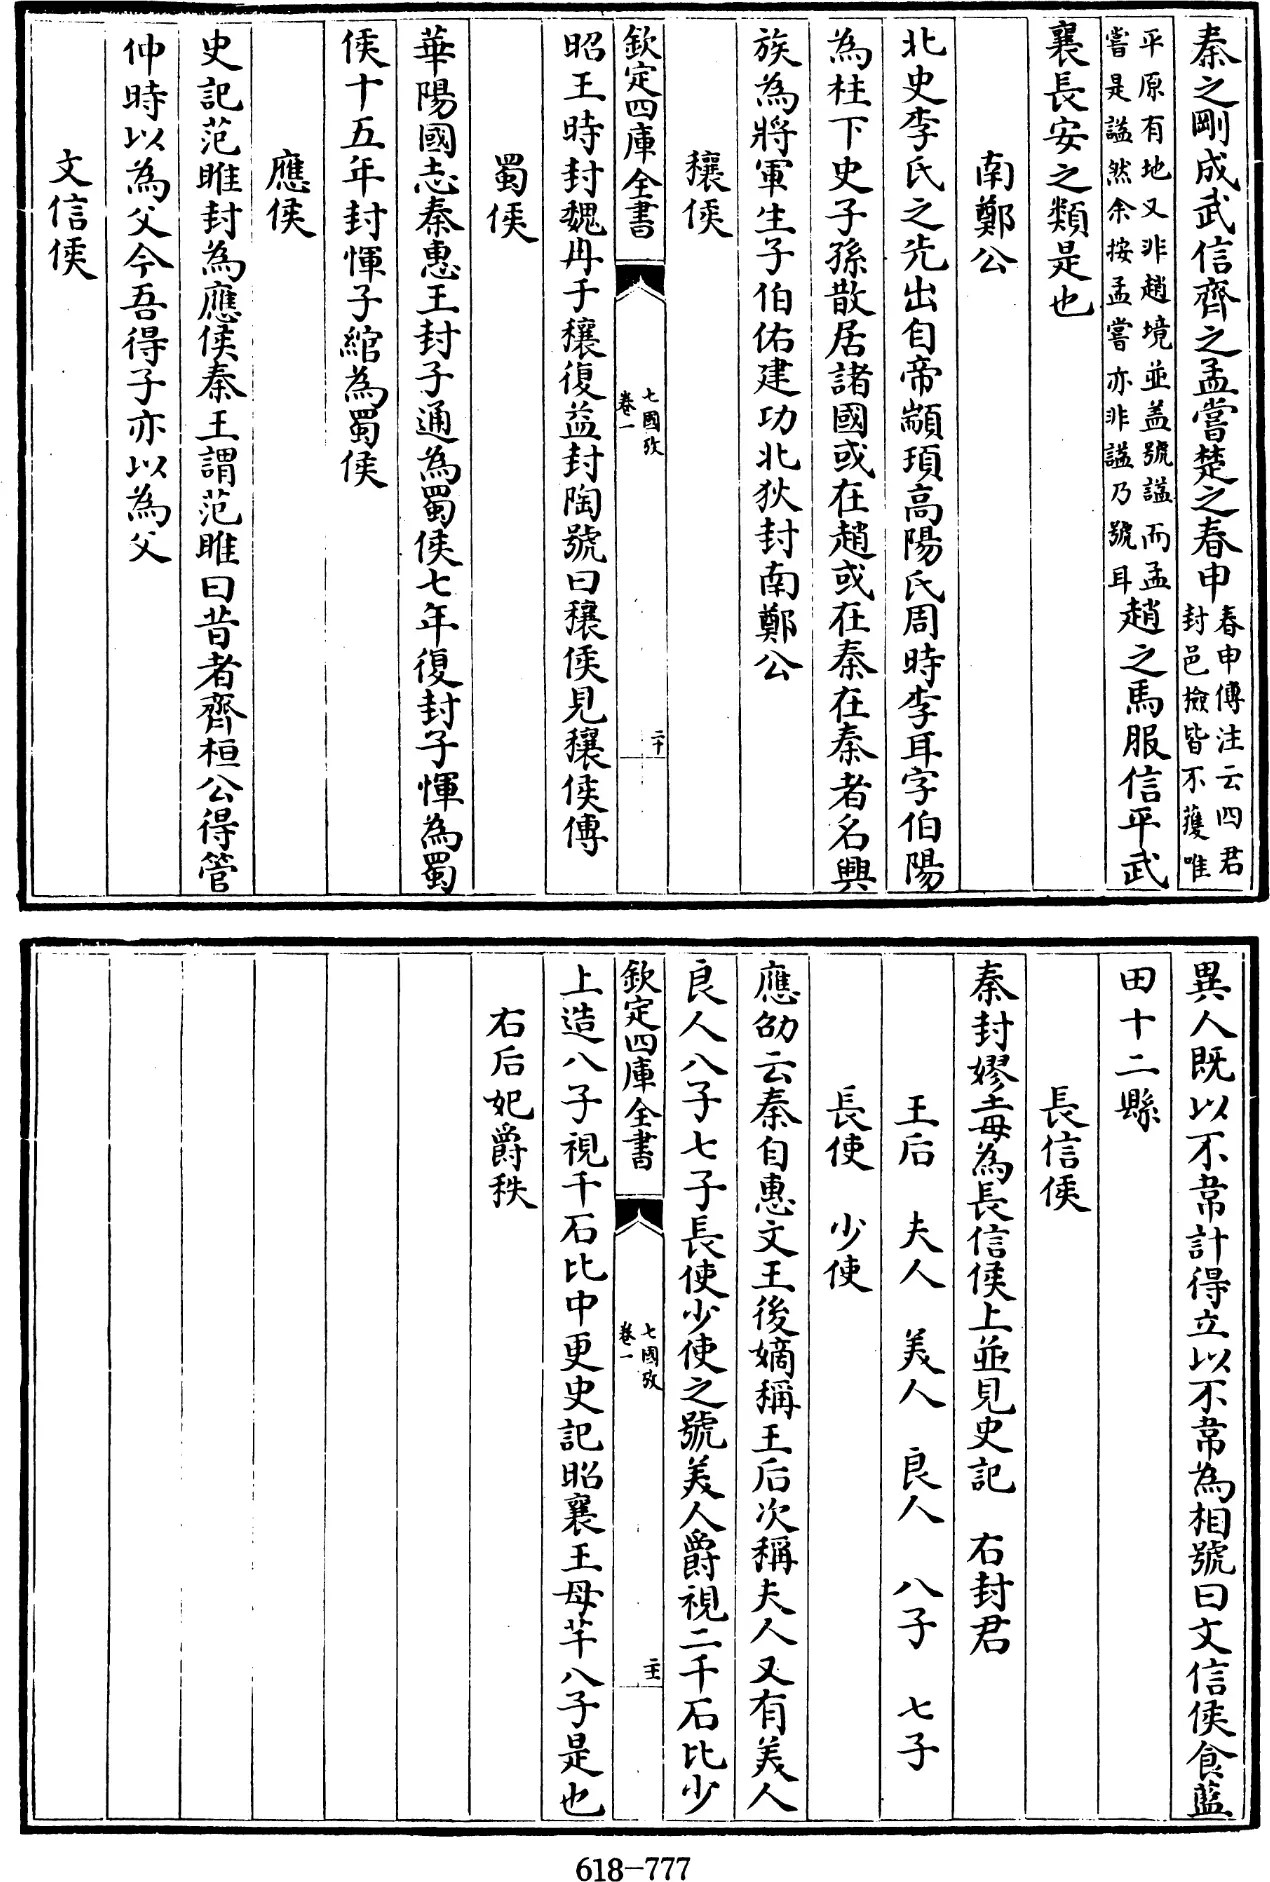 秦之剛成武信齊之孟嘗楚之春申春申傳注云四君
封邑檢皆不獲唯
平原有地又非趙境並蓋號諡而孟
嘗是諡然余按孟嘗亦非諡乃號耳趙之馬服信平武
襄長安之類是也
南鄭公
北史李氏之先出自帝顓頊高陽氏周時李耳字伯陽
為柱下史子孫散居諸國或在趙或在秦在秦者名興
族為將軍生子伯佑建功北狄封南鄭公
穰侯
欽定四庫全書
七國攷
卷一
二十
昭王時封魏冉于穰復益封陶號曰穰侯見穰侯傳
蜀侯
華陽國志秦惠王封子通為蜀侯七年復封子惲為蜀
侯十五年封惲子綰為蜀侯
應侯
史記范睢封為應侯秦王謂范睢曰昔者齊桓公得管
仲時以為父今吾得子亦以為父
文信侯
異人既以不韋計得立以不韋為相號曰文信侯食藍
田十二縣
長信侯
秦封嫪毐為長信侯上並見史記 右封君
王后 夫人 美人 良人 八子 七子
長使 少使
應劭云秦自惠文王後嫡稱王后次稱夫人又有美人
良人八子七子長使少使之號美人爵視二千石比少
欽定四庫全書
七國攷
卷一
二十一
上造八子視千石比中更史記昭襄王母芊八子是也
右后妃爵秩
618-777